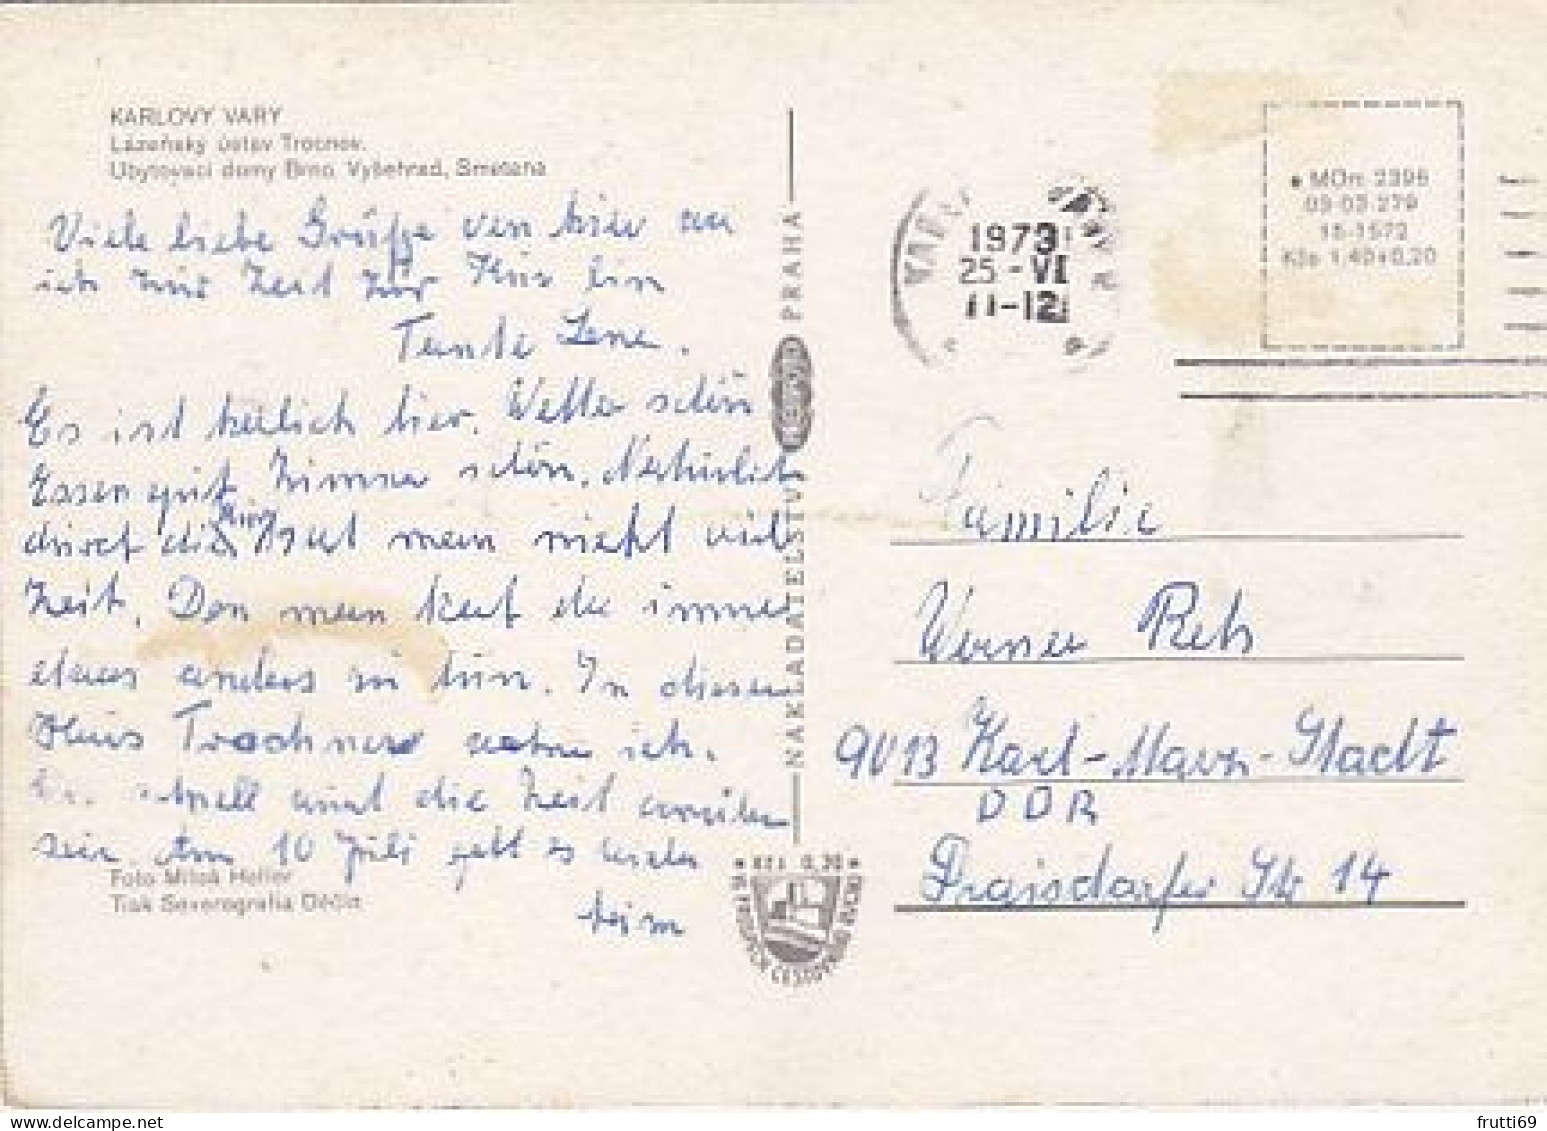 KARLOVY VARY
Lázeňský ústav Trocnov.
Ubytovací domy Brno, Vyšehrad, Smetana
Viele liebe Grüße von hier
ich zur Zeit zur Kur bin
Tante Lene.
Es ist herlich hier. Wetter schön
Essen gut, Zimmer schön. Natürlich
durch die Kur hat man nicht viel
Zeit. Den man hat da immer
etwas anders zu tun. In diesen
Haus Trochnow wohne ich.
schnell wird die Zeit
sein. Am 10 Juli geht es wieder
heim
Foto Miloš Heller
Tisk Severografia Děčín
NAKLADATELSTVÍ ORBIS PRAHA
Kčs 0,30
1973
25 -VI
11-12
MOm 2396
03-03-279
15-1572
Kčs 1,40+0,20
Familie
Werner
9013 Karl-Marx-Stadt
DDR
Str 14
frutti69